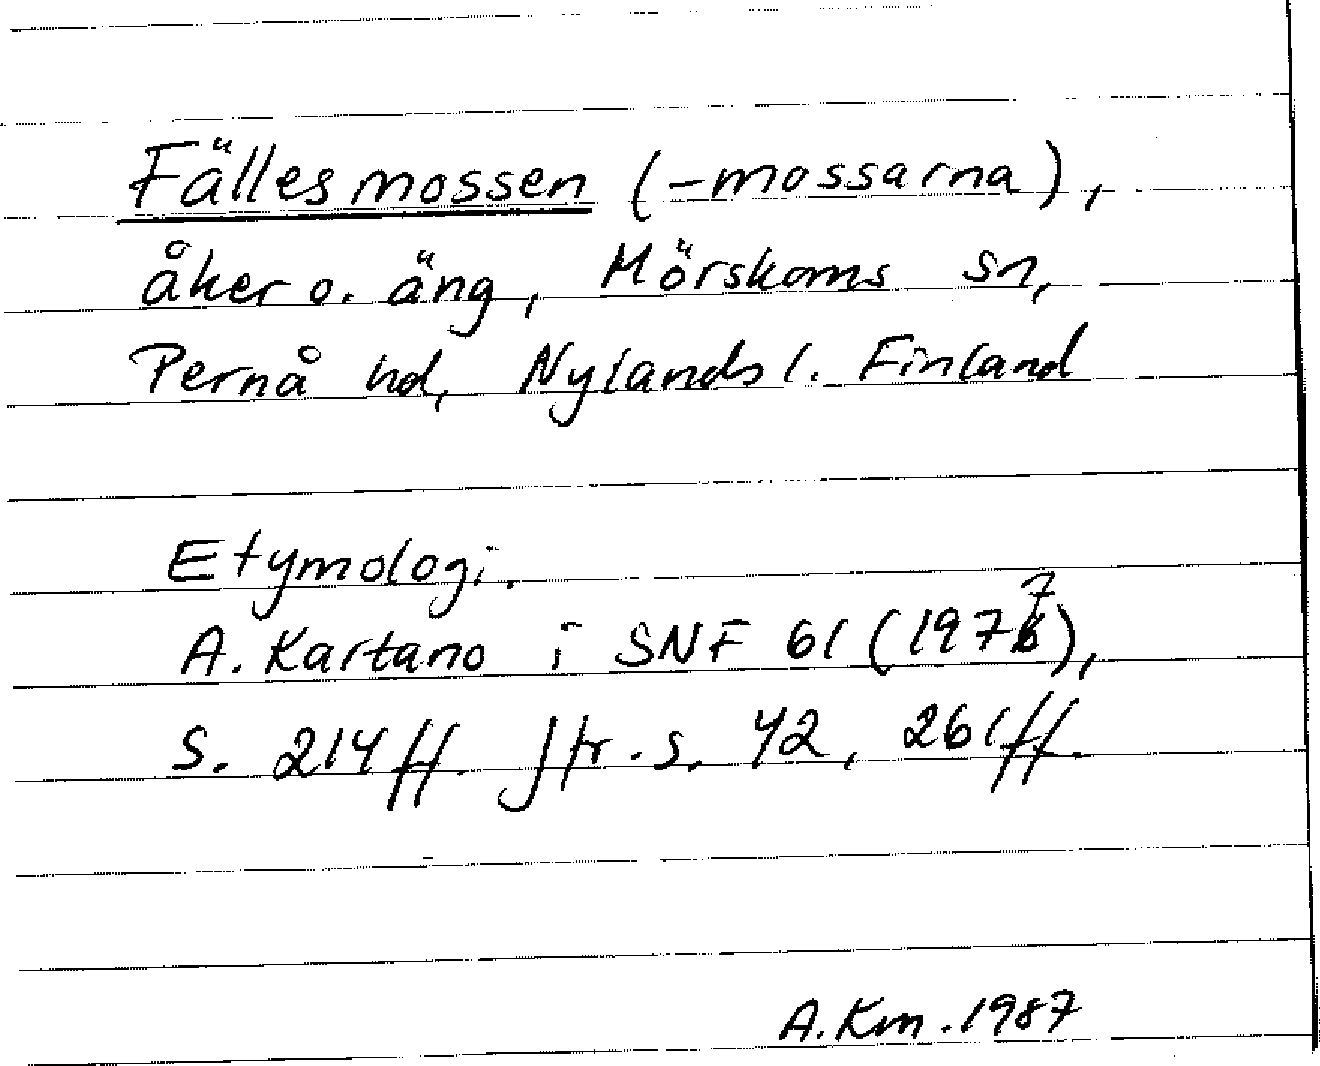 Fällesmossen (-mossarna),
åker o. äng, Mörskoms sn,
Pernå hd, Nylands l. Finland
Etymologi.
A. Kartano i SNF 61 (1977),
S. 214 ff. Jfr. s. 42, 261 ff.
A. Km. 1987